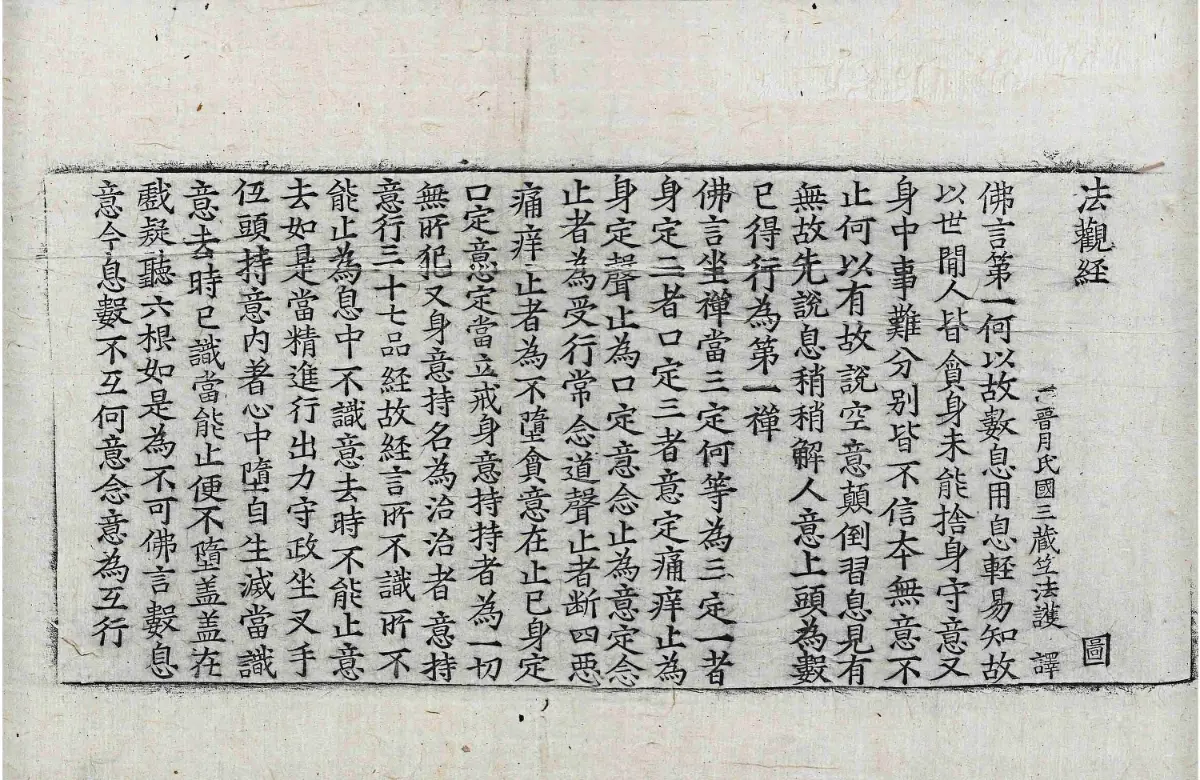 法觀経 圖
西晉月氏國三蔵竺法護 譯
佛言第一何以故數息用息軽易知故
以世間人皆貪身未能捨身守意又
身中事難分别皆不信本無意不
止何以有故說空意顛倒習息見有
無故先說息稍稍解人意上頭為數
已得行為第一禪
佛言坐禪當三定何等為三定一者
身定二者口定三者意定痛痒止為
身定聲止為口定意念止為意定念
止者為受行常念道聲止者断四惡
痛痒止者為不墮貪意在止已身定
口定意定當立戒身意持持者為一切
無所犯又身意持名為治治者意持
意行三十七品経故経言所不識所不
能止為息中不識意去時不能止意
去如是當精進行出力守政坐叉手
伍頭持意内著心中墮自生滅當識
意去時已識當能止便不墮盖盖在
戲疑聽六根如是為不可佛言數息
意今息數不互何意念意為互行